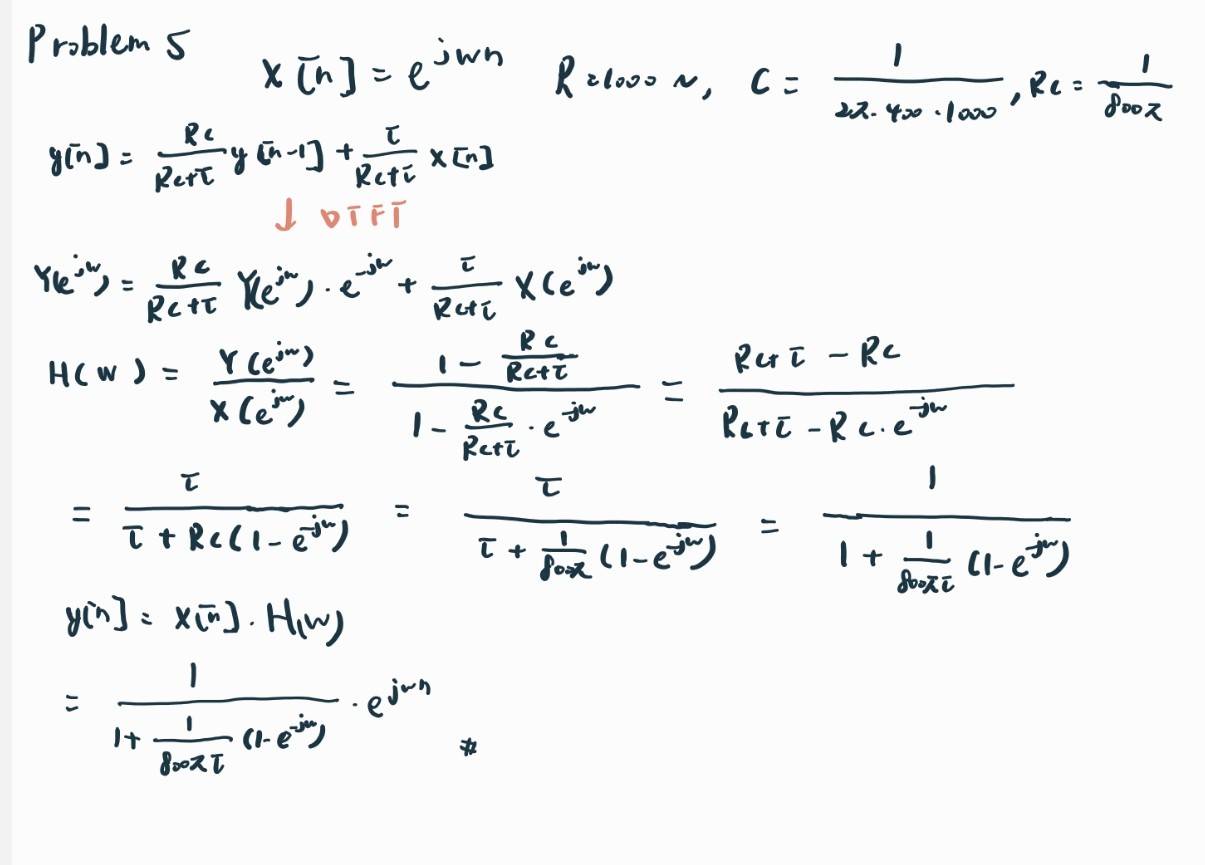 Problem 5
x[n] = e^{jwn}   R = 1000 Ω, C = \frac{1}{2π·400·1000}, RC = \frac{1}{800π}
y[n] = \frac{RC}{RC+τ} y[n-1] + \frac{τ}{RC+τ} x[n]
↓ DTFT
Y(e^{jw}) = \frac{RC}{RC+τ} Y(e^{jw}) · e^{-jw} + \frac{τ}{RC+τ} X(e^{jw})
H(w) = \frac{Y(e^{jw})}{X(e^{jw})} = \frac{1 - \frac{RC}{RC+τ}}{1 - \frac{RC}{RC+τ} · e^{-jw}} = \frac{RC+τ - RC}{RC+τ - RC · e^{-jw}}
= \frac{τ}{τ + RC(1 - e^{-jw})} = \frac{τ}{τ + \frac{1}{800π}(1 - e^{-jw})} = \frac{1}{1 + \frac{1}{800πτ}(1 - e^{-jw})}
y[n] = x[n] · H(w)
= \frac{1}{1 + \frac{1}{800πτ}(1 - e^{-jw})} · e^{jwn} #